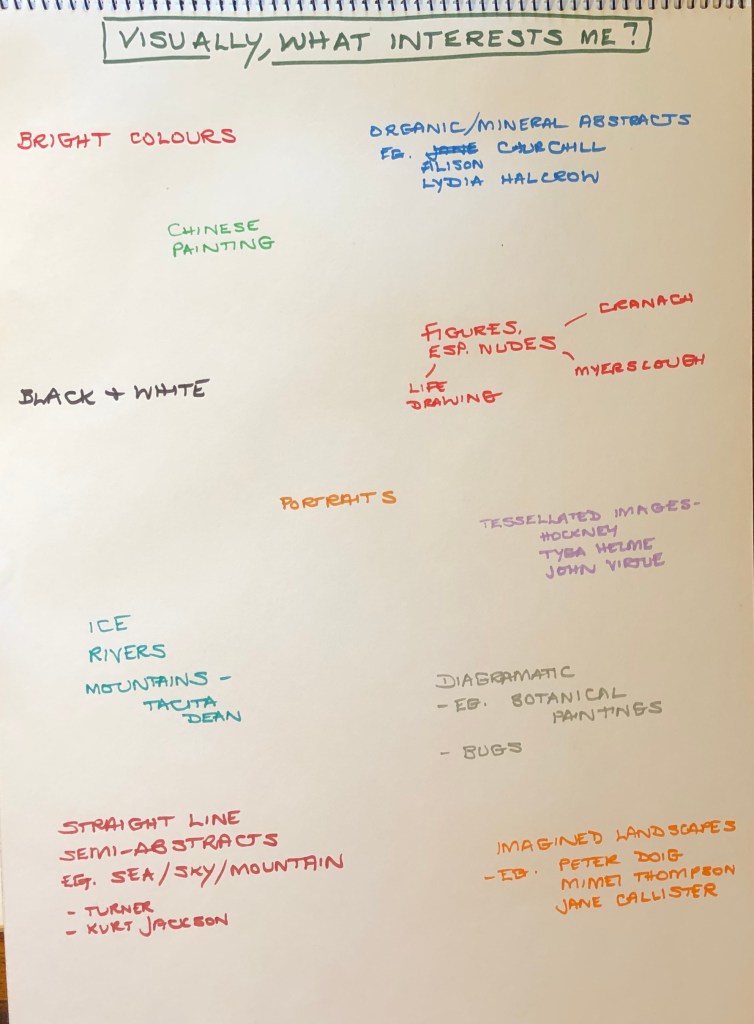 VISUALLY, WHAT INTERESTS ME?
BRIGHT COLOURS
ORGANIC/MINERAL ABSTRACTS
EG. JANE CHURCHILL
ALISON
LYDIA HALCROW
CHINESE
PAINTING
FIGURES,
ESP. NUDES
CRANACH
MYERSCOUGH
LIFE
DRAWING
BLACK + WHITE
PORTRAITS
TESSELLATED IMAGES-
HOCKNEY
TYGA HELME
JOHN VIRTUE
ICE
RIVERS
MOUNTAINS -
TACITA
DEAN
DIAGRAMATIC
- EG. BOTANICAL
PAINTINGS
- BUGS
STRAIGHT LINE
SEMI-ABSTRACTS
EG. SEA/SKY/MOUNTAIN
- TURNER
- KURT JACKSON
IMAGINED LANDSCAPES
- EG. PETER DOIG
MIMEI THOMPSON
JANE CALLISTER